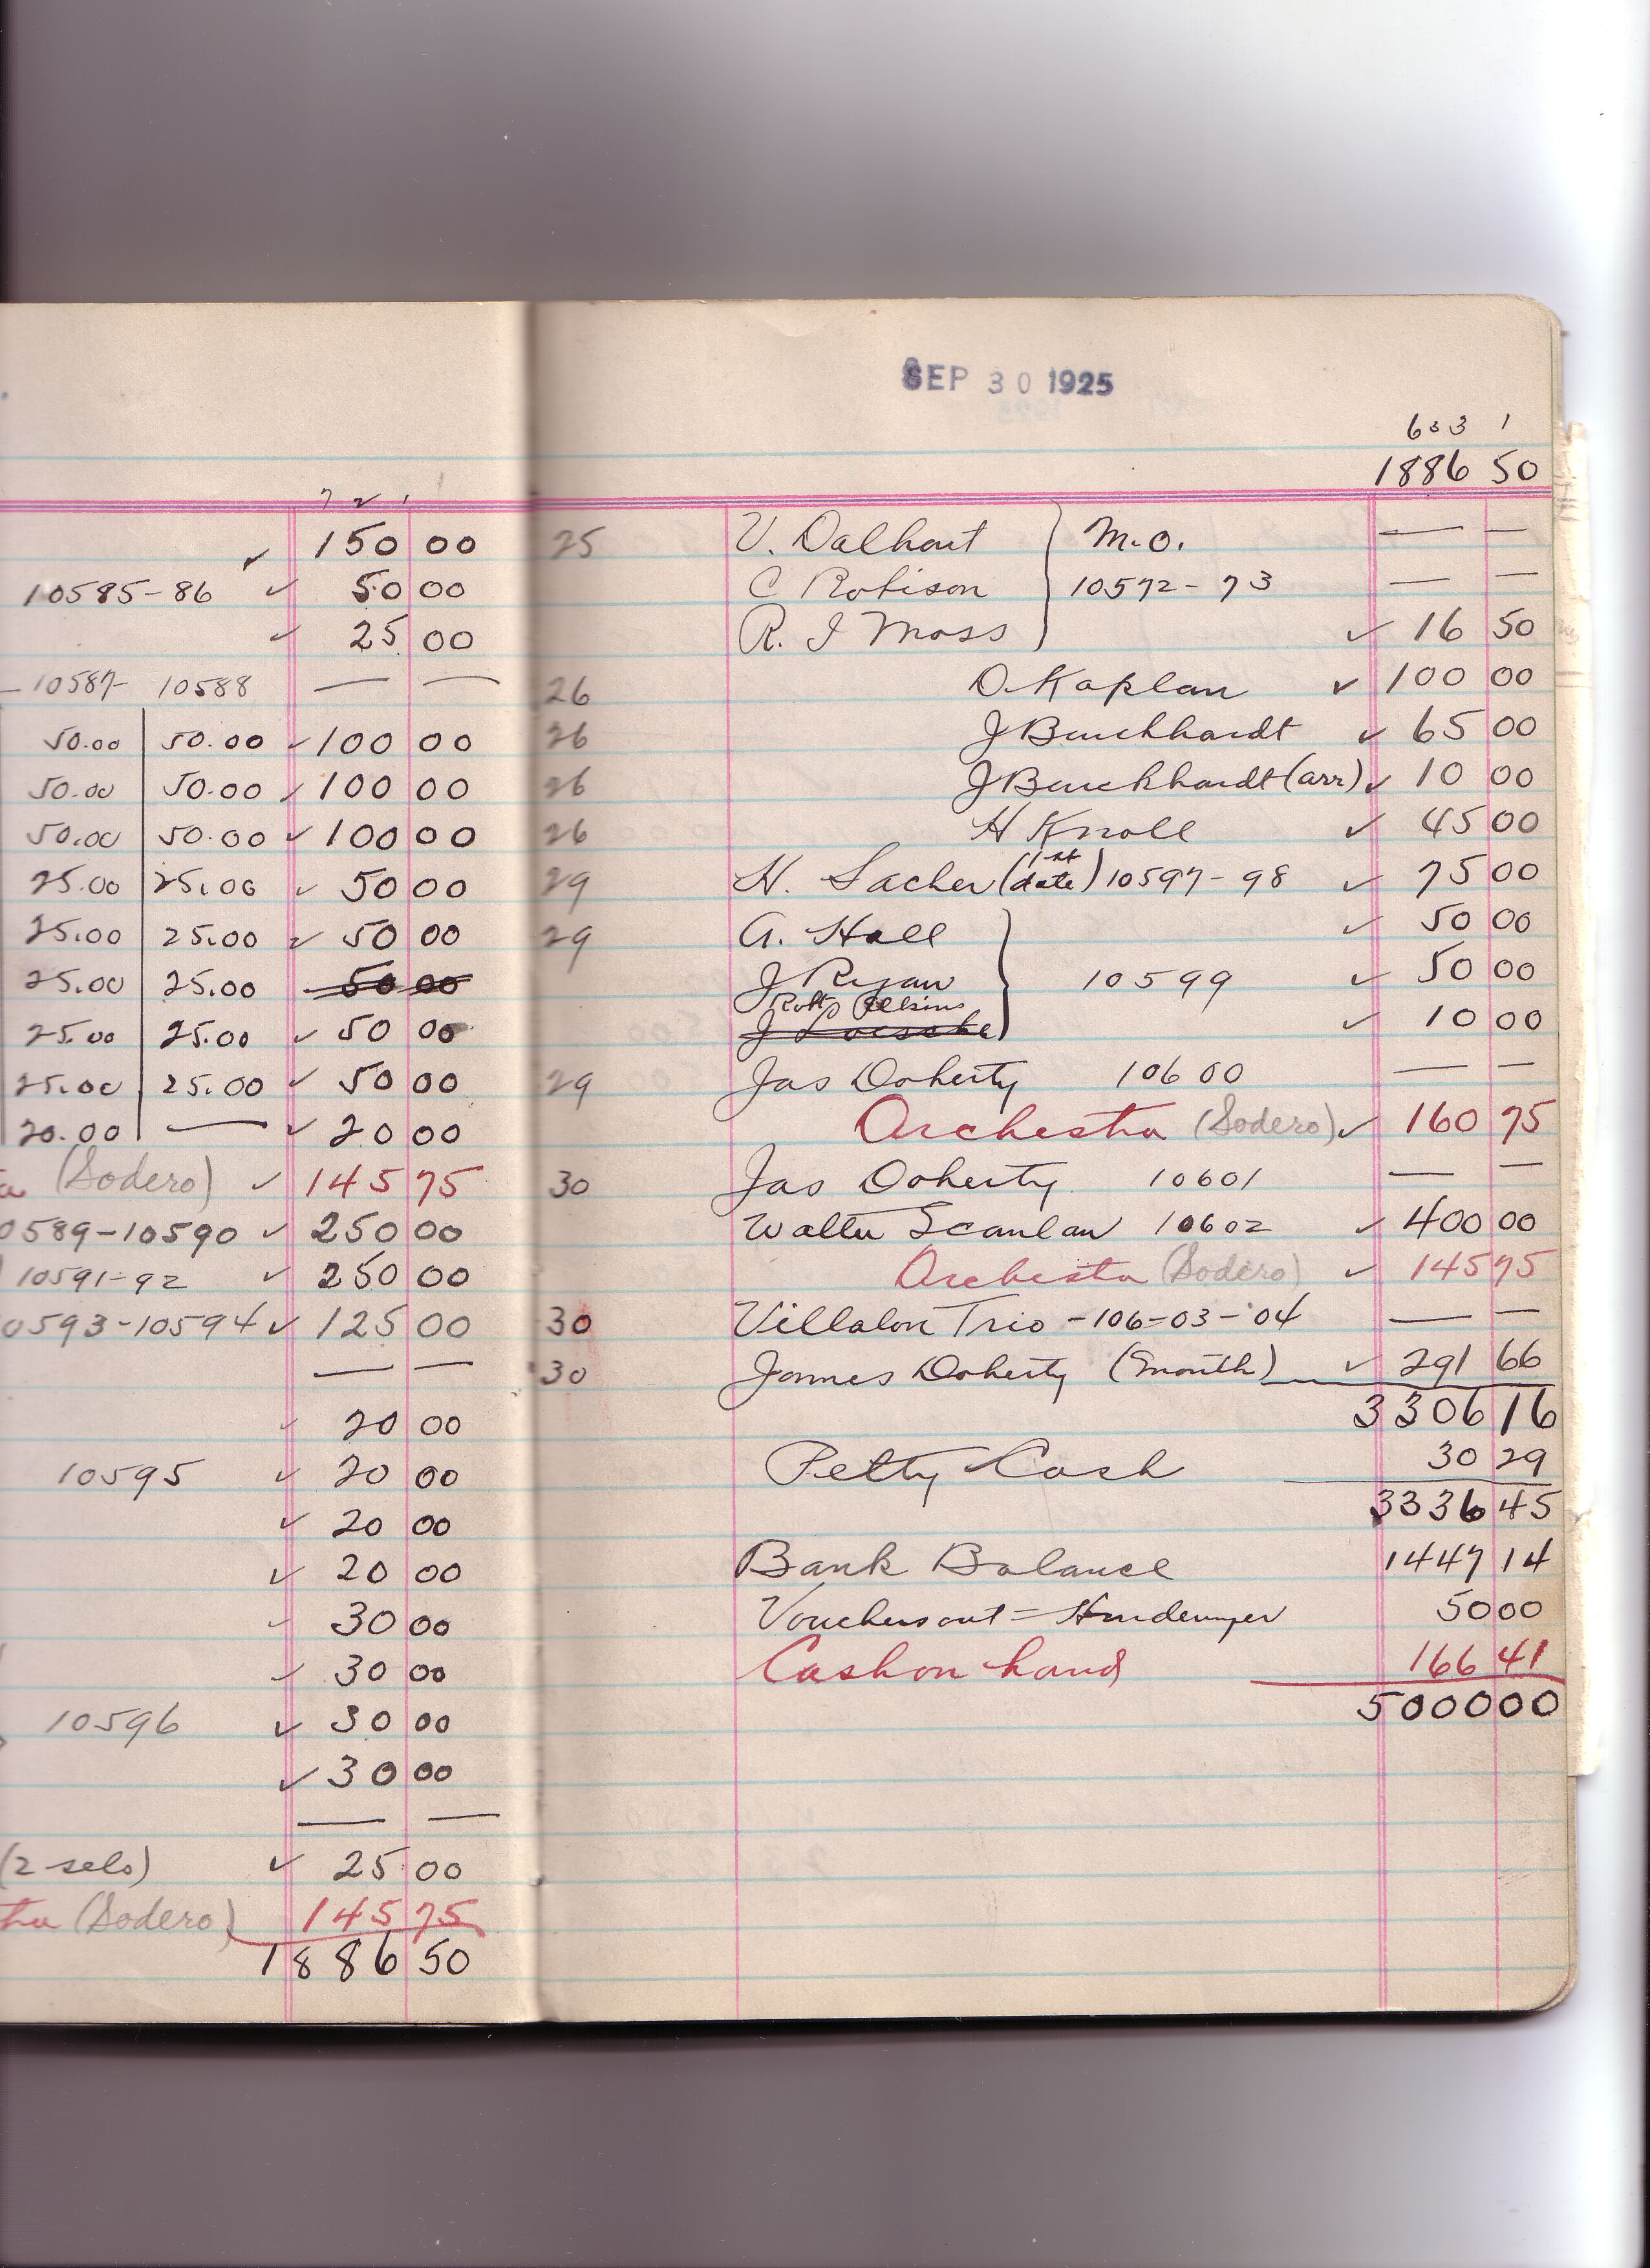 7 2 1
✓ 150 00
10585-86 ✓ 50 00
✓ 25 00
- 10587- 10588 — —
50.00 50.00 ✓ 100 00
50.00 50.00 ✓ 100 00
50.00 50.00 ✓ 100 00
25.00 25.00 ✓ 50 00
25.00 25.00 ✓ 50 00
25.00 25.00 50 00
25.00 25.00 ✓ 50 00
25.00 25.00 ✓ 50 00
20.00 — ✓ 20 00
a (Sodero) ✓ 145 75
0589-10590 ✓ 250 00
10591-92 ✓ 250 00
0593-10594 ✓ 125 00
— —
✓ 20 00
10595 ✓ 20 00
✓ 20 00
✓ 20 00
✓ 30 00
✓ 30 00
10596 ✓ 30 00
✓ 30 00
— —
(2 sels) ✓ 25 00
tra (Sodero) 145 75
1886 50
SEP 30 1925
603 1
1886 50
25 V. Dalhart } M.O. — —
C Robison 10572-73 — —
R. J Moss ✓ 16 50
26 D. Kaplan ✓ 100 00
26 J Burckhardt ✓ 65 00
26 J Burckhardt (arr) ✓ 10 00
26 H Knoll ✓ 45 00
29 H. Sacher (1st date) 10597-98 ✓ 75 00
29 A. Hall } ✓ 50 00
J Ryan 10599 ✓ 50 00
Robt
J ✓ 10 00
29 Jas Doherty 10600 — —
Orchestra (Sodero) ✓ 160 75
30 Jas Doherty 10601 — —
Walter Scanlan 10602 ✓ 400 00
Orchestra (Sodero) ✓ 145 75
30 Villalon Trio - 106-03-'04 — —
30 James Doherty (month) ✓ 291 66
3306 16
Petty Cash 30 29
3336 45
Bank Balance 1447 14
Vouchers out = 50 00
Cash on hand 166 41
5000 00